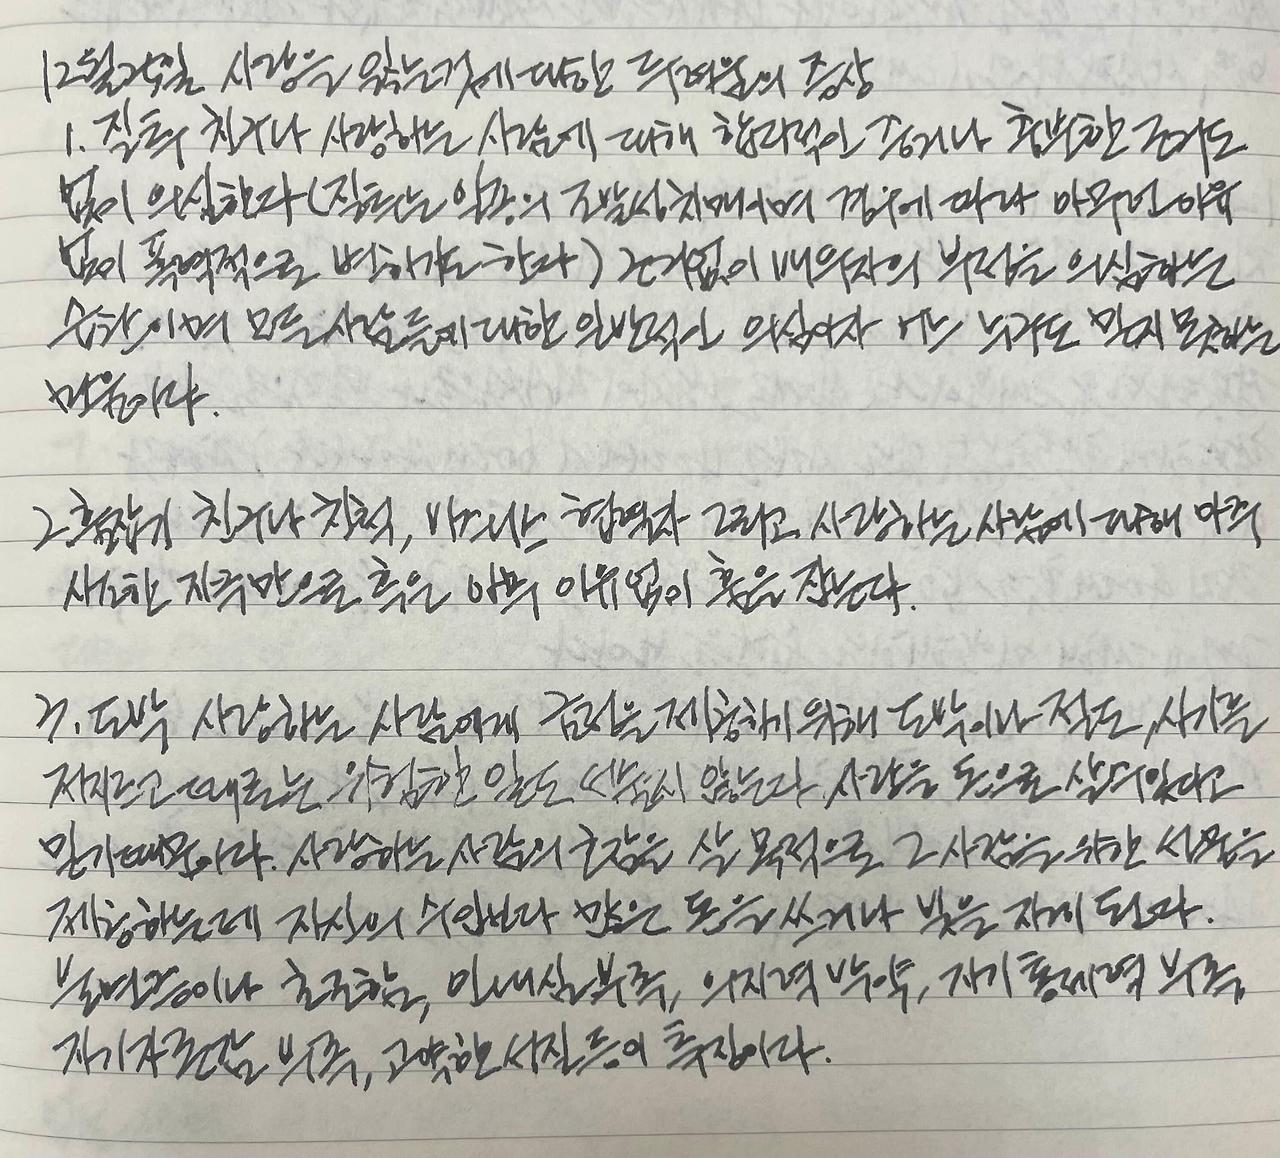 12월24일 사랑을 잃는것에 대한 두려움의 증상
1. 질투 친구나 사랑하는 사람에 대해 합리적인 증거나 충분한 근거도
없이 의심한다(질투는 일종의 조발성치매이며 경우에 따라 아무런 이유
없이 폭력적으로 변하기도 한다) 근거없이 배우자의 부정을 의심하는
습관이며 모든 사람들에 대한 일반적인 의심이자 어느 누구도 믿지 못하는
마음이다.
2. 흠잡기 친구나 친척, 비즈니스 협력자 그리고 사랑하는 사람에 대해 아주
사소한 자극만으로 혹은 아무 이유없이 흠을 잡는다.
3. 도박 사랑하는 사람에게 금전을 제공하기 위해 도박이나 절도, 사기를
저지르고 때로는 위험한 일도 서슴지 않는다. 사랑을 돈으로 살 수 있다고
믿기 때문이다. 사랑하는 사람의 환심을 살 목적으로 그 사람을 위한 선물을
제공하는데 자신의 수입보다 많은 돈을 쓰거나 빚을 지게 된다.
불면증이나 초조함, 인내심 부족, 의지력 박약, 자기 통제력 부족,
자기 자존감 부족, 고약한 성질 등이 특징이다.